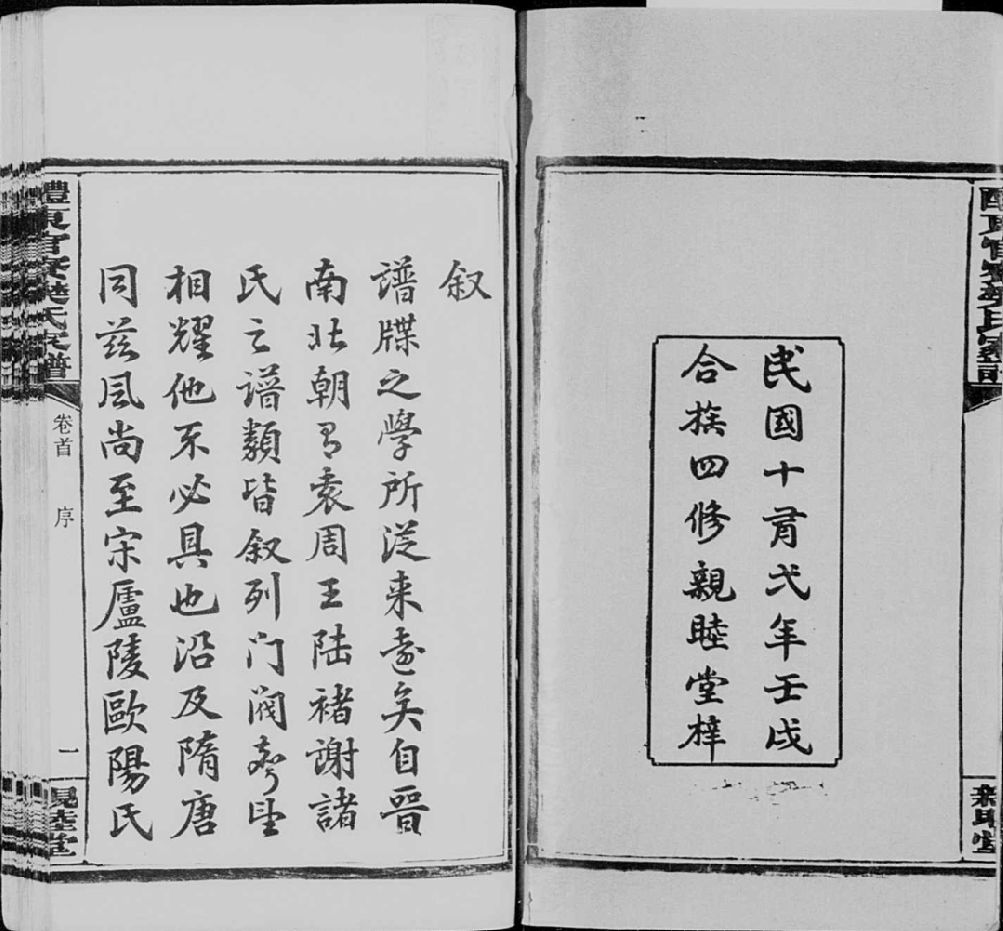 民國十有弌年壬戌
合族四修親睦堂梓
叙
譜牒之學所從来遠矣自晋
南北朝有袁周王陸褚謝諸
氏之譜類皆叙列门阀夸望
相耀他不必具也沿及隋唐
同兹風尚至宋廬陵歐陽氏
醴東官寮樊氏家譜
卷首 序
一
親睦堂